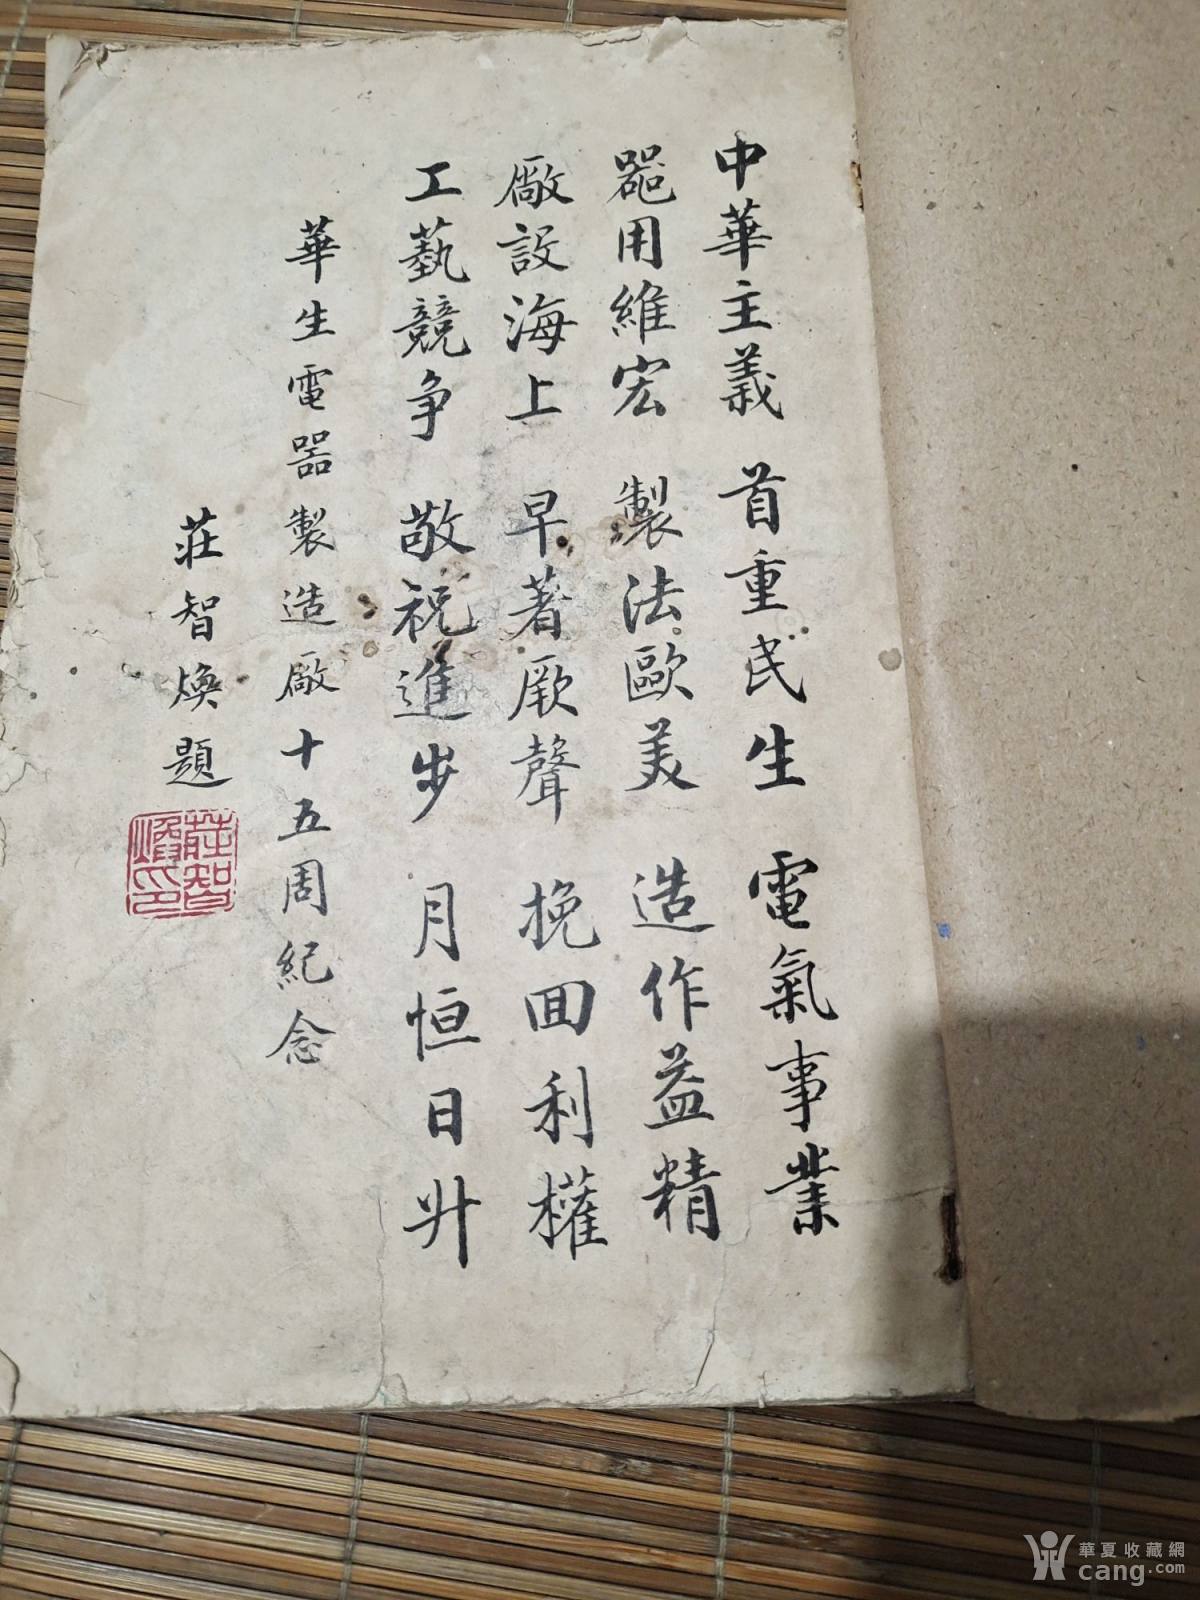 中華主義 首重民生 電氣事業
器用維宏 製法歐美 造作益精
廠設海上 早著厥聲 挽回利權
工藝競爭 敬祝進步 月恒日升
華生電器製造廠十五周紀念
莊智煥題
莊智煥印
華夏收藏網
cang.com